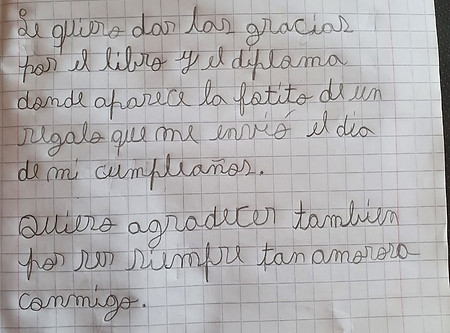 Le quiero dar las gracias
por el libro y el diploma
donde aparece la fotito de un
regalo que me envió el dia
de mi cumpleaños.
Quiero agradecer tambien
por ser siempre tan amorosa
conmigo.